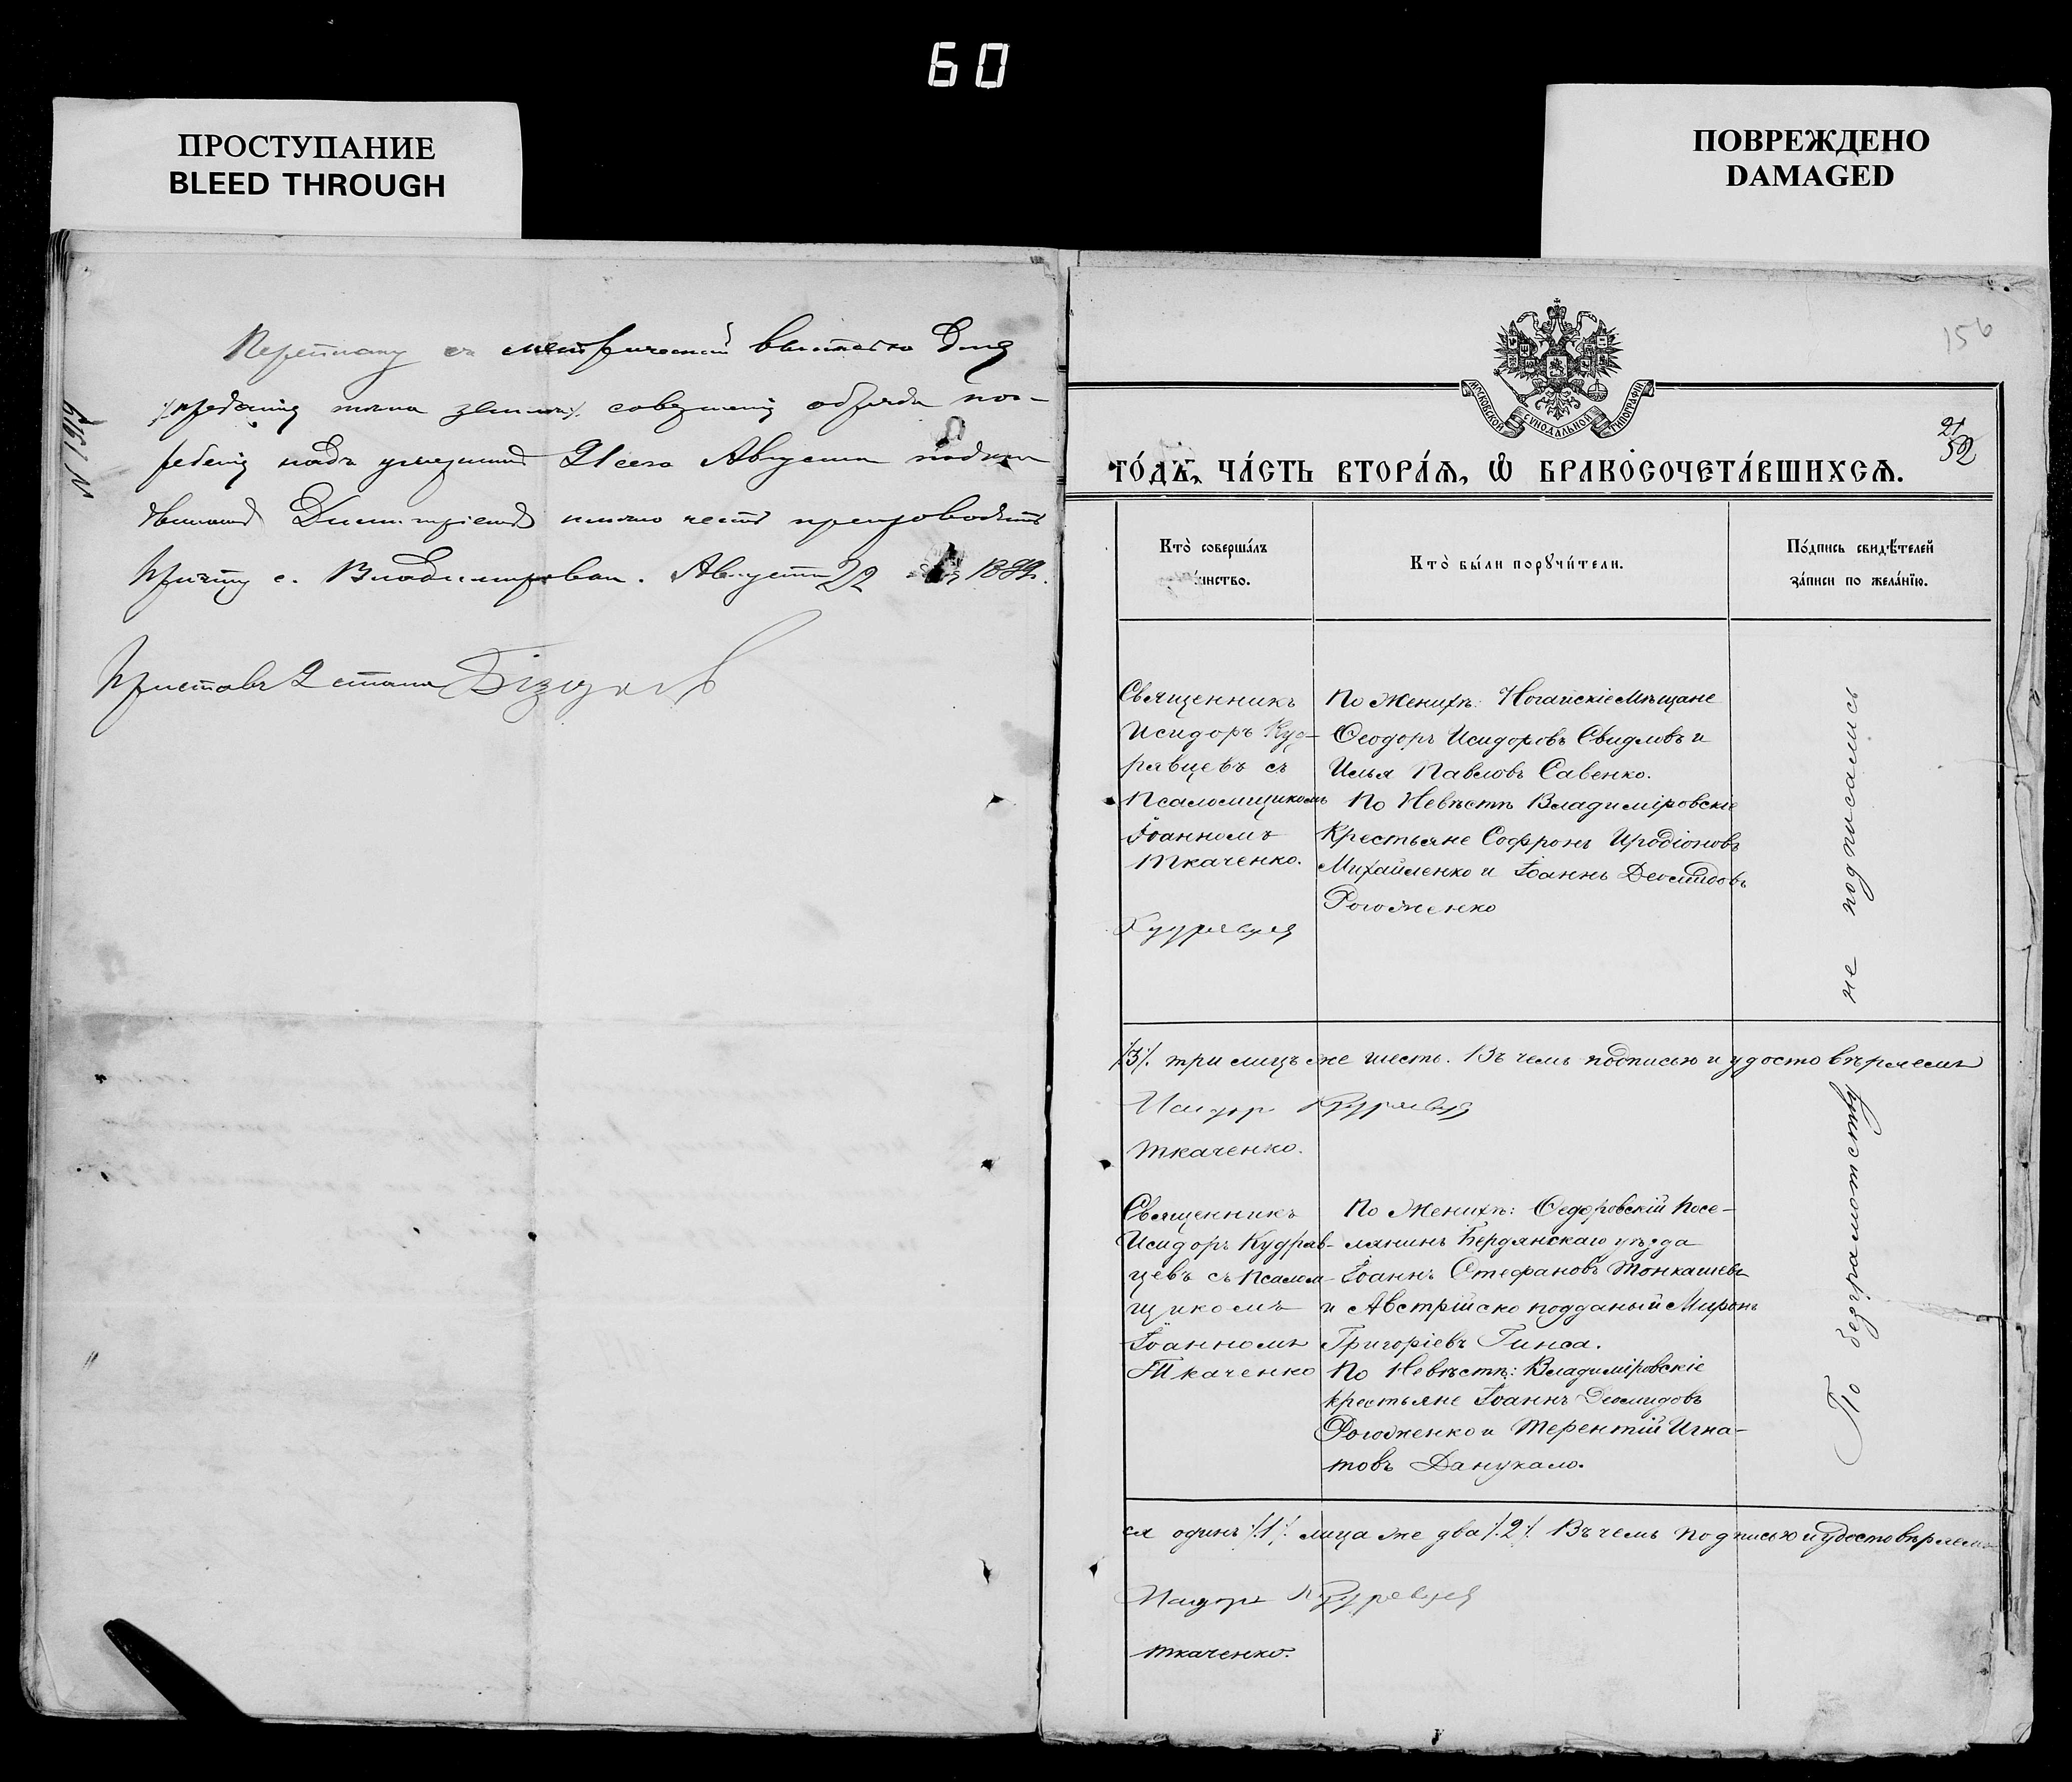 60
ПРОСТУПАНИЕ
BLEED THROUGH
ПОВРЕЖДЕНО
DAMAGED
Переписку съ метрической выпиской для
преданія тѣла землѣ совершенія обряда пог-
ребенія надъ умершимъ 21 сего Августа
Дмитріемъ имѣю честь препроводить
Причту с. Владимировки. Августа 22 1899 г.
Приставъ 2 стана
МОСКОВСКОЙ СѴНОДАЛЬНОЙ ТИПОГРАФІИ
156
21
52
го́дъ, ча́сть втора́ѧ, ѽ бракосочета́вшихсѧ.
Кто̀ соверша́лъ
инство.
Кто̀ бы́ли порꙋчи́тели.
По́дпись свидѣ́телей
за́писи по жела́нїю.
Священникъ
Исидоръ Куд-
рявцевъ съ
Псаломщикомъ
Іоанномъ
Ткаченко.
Кудрявцев
По Женихѣ: Ногайскіе Мѣщане
Ѳеодоръ Исидоровъ Свидловъ и
Илья Павловъ Савенко.
По Невѣстѣ Владиміровскіе
Крестьяне Софронъ Иродіоновъ
Михайленко и Іоаннъ Деомидовъ
Рогоженко
По безграмотству не подписались
/3/. три лицъ же шесть. Въ чемъ подписью и удостовѣряемъ
Исидор Кудрявцев
Ткаченко.
Священникъ
Исидоръ Кудряв-
цевъ съ Псалом-
щикомъ
Іоанномъ
Ткаченко
По Женихѣ: Ѳедоровскій Посе-
лянинъ Бердянскаго уѣзда
Іоаннъ Стефановъ Тонкашевъ
и Австрійско подданый Миронъ
Григоріевъ Гинса.
По Невѣстѣ: Владиміровскіе
крестьяне Іоаннъ Деомидовъ
Рогоженко и Терентій Игна-
товъ Данукало.
ся одинъ /1/. лица же два /2/. Въ чемъ подписью и удостовѣряемъ
Исидор Кудрявцев
Ткаченко.